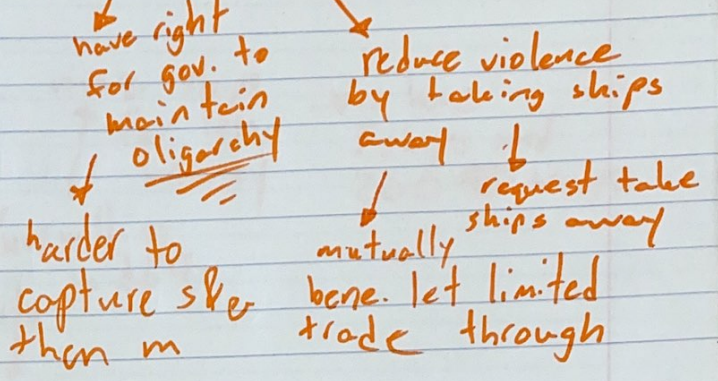 have right
for gov. to
maintain
oligarchy
harder to
capture
than m
reduce violence
by taking ships
away
request take
ships away
mutually
bene. let limited
trade through